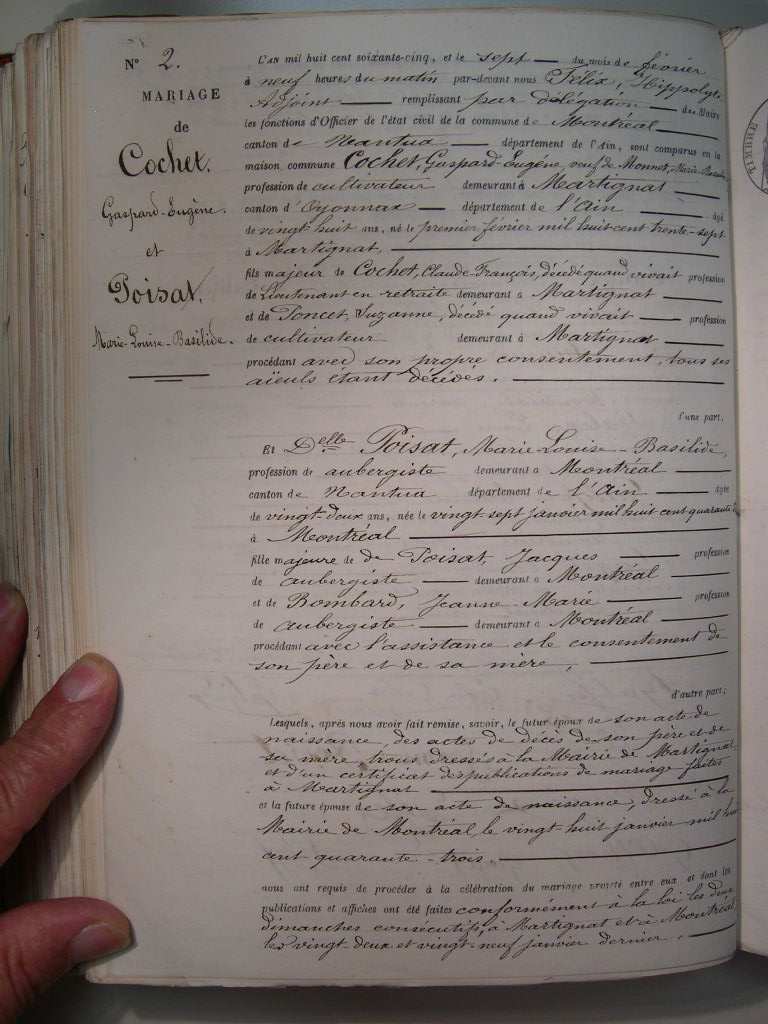 N° 2.
MARIAGE
de
Cochet.
Gaspard-Eugène.
et
Poisat.
Marie-Louise-Basilide.
L'AN mil huit cent soixante-cinq, et le sept du mois de février
à neuf heures du matin par-devant nous Félix, Hippolyte
Adjoint remplissant par délégation du Maire
les fonctions d'Officier de l'état civil de la commune de Montréal
canton de Nantua département de l'Ain, sont comparus en la
maison commune Cochet, Gaspard-Eugène, veuf de Monnet, Marie
profession de cultivateur demeurant à Martignat
canton d'Oyonnax département de l'Ain âgé
de vingt huit ans, né le premier février mil huit cent trente-sept
à Martignat
fils majeur de Cochet, Claude-François, décédé quand vivait profession
de Lieutenant en retraite demeurant à Martignat
et de Poncet, Suzanne, décédé quand vivait profession
de cultivateur demeurant à Martignat
procédant avec son propre consentement, tous ses
aïeuls étant décédés.
d'une part.
Et Delle Poisat, Marie-Louise-Basilide,
profession de aubergiste demeurant à Montréal
canton de Nantua département de l'Ain âgée
de vingt-deux ans, née le vingt sept janvier mil huit cent quarante
à Montréal
fille majeure de de Poisat, Jacques profession
de aubergiste demeurant à Montréal
et de Bombard, Jeanne-Marie profession
de aubergiste demeurant à Montréal
procédant avec l'assistance et le consentement de
son père et de sa mère,
d'autre part,
Lesquels, après nous avoir fait remise, savoir, le futur époux de son acte de
naissance, des actes de décès de son père et de
sa mère, tous dressés à la Mairie de Martignat
et d'un certificat des publications de mariage faites
à Martignat
et la future épouse de son acte de naissance, dressé à la
Mairie de Montréal, le vingt huit janvier mil huit
cent quarante-trois.
nous ont requis de procéder à la célébration du mariage projeté entre eux et dont les
publications et affiches ont été faites conformément à la loi les deux
dimanches consécutifs, à Martignat et à Montréal
les vingt deux et vingt-neuf janvier dernier,
TIMBRE